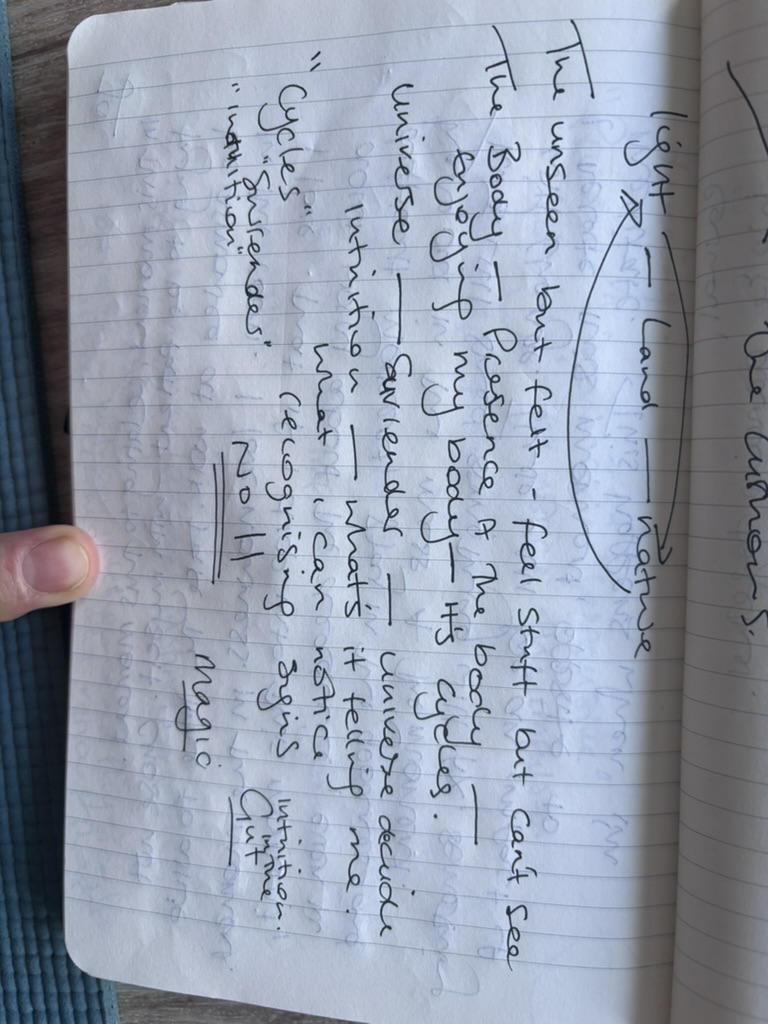 light — Land — nature
The unseen but felt - feel stuff but can't see
The Body — Presence A The body —
enjoying my body — it's cycles.
Universe — Surrender — universe decide
intuition — what's it telling me.
what i can notice
"Cycles" recognising signs intuition.
"Surrender" in the
"intuition" NoH Gut
Magic